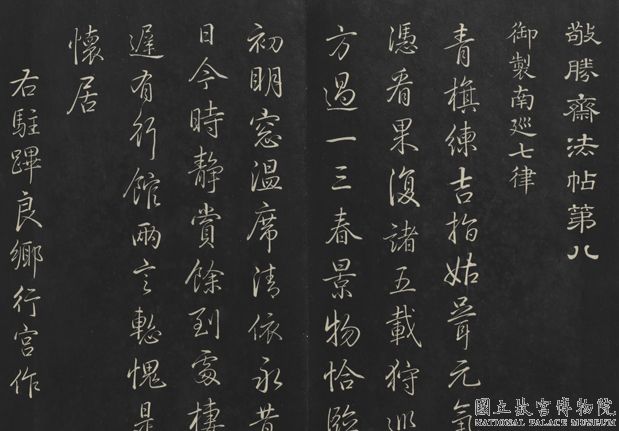 敬勝齋法帖第八
御製南巡七律
青旗練吉指姑聳元氣
憑看果復諸五載狩巡
方過一三春景物恰臨
初明窓温席清依永昔
日今時靜賞餘到處棲
遲有行館兩言慙愧是
懷居
右駐蹕良鄉行宫作
國立故宮博物院
NATIONAL PALACE MUSEUM